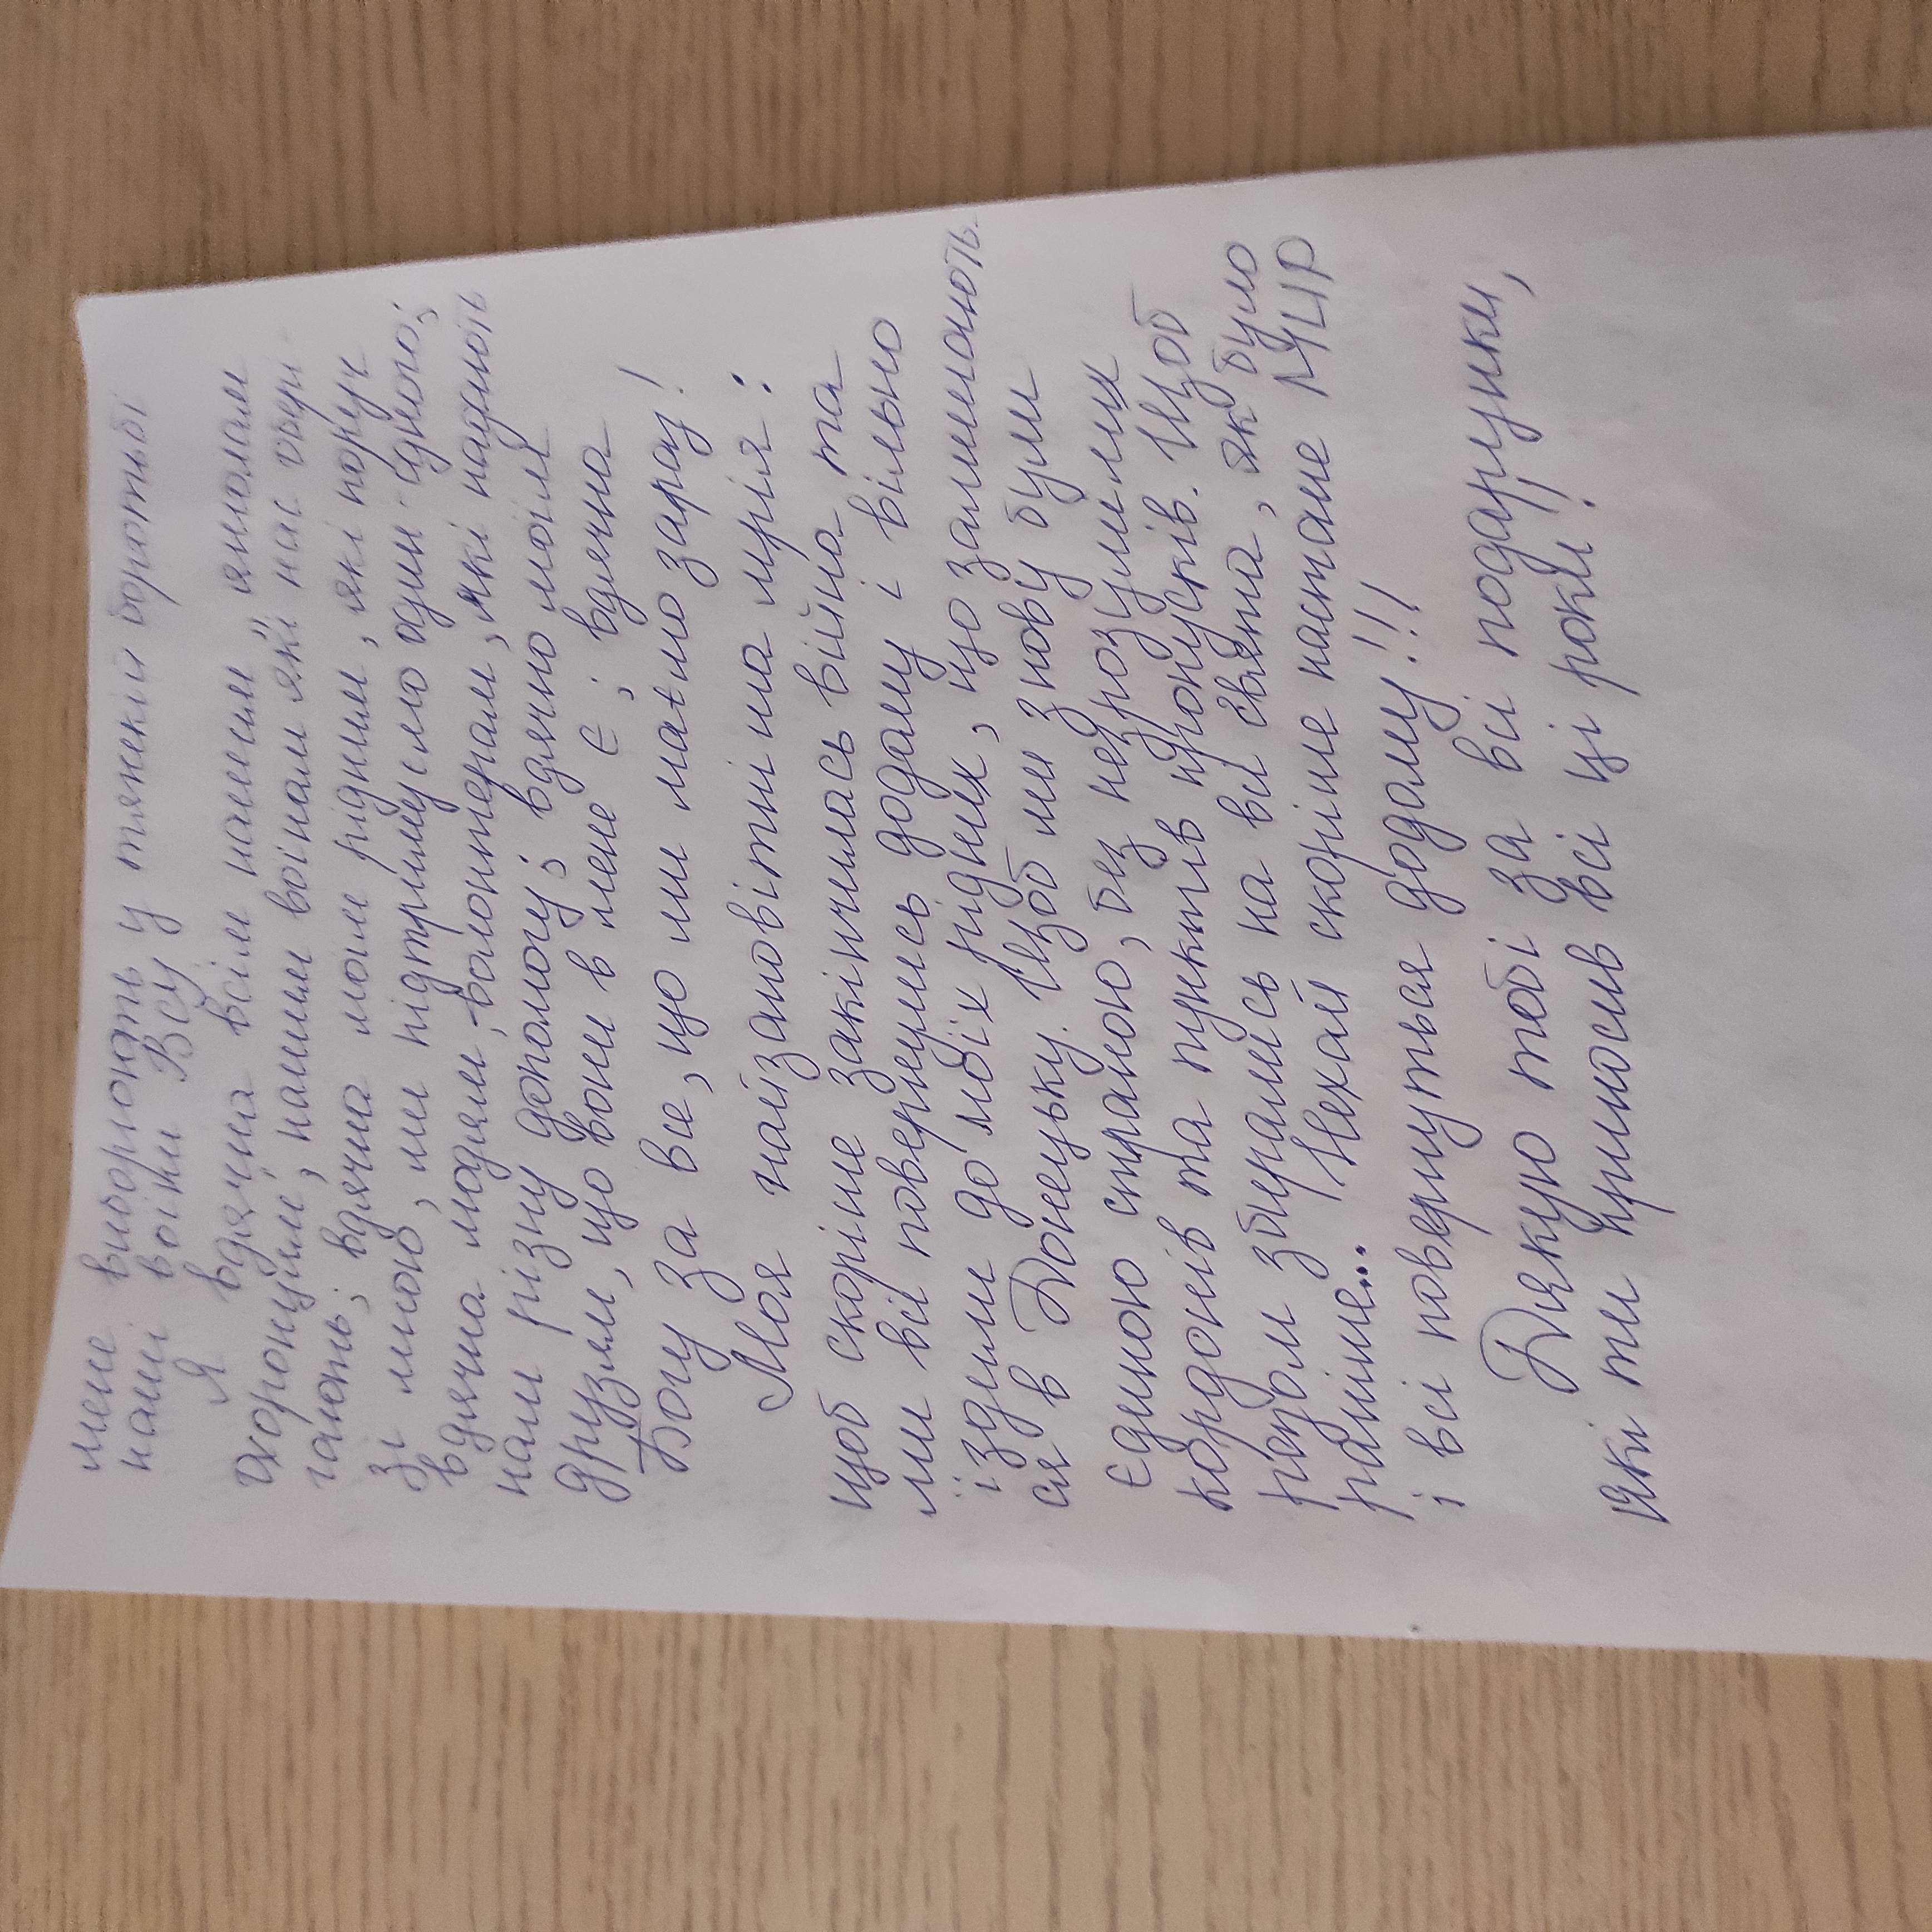 мене виборюють у тяжкій боротьбі
наші воїни ВСУ
Я вдячна всім нашим „янголам
охоронцям", нашим воїнам які нас обері-
гають; вдячна моїм рідним, які поруч
зі мною, ми підтримуємо один-одного;
вдячна людям-волонтерам, які надають
нам різну допомогу; вдячна моїм
друзям, що вони в мене є; вдячна
Богу за все, що ми маємо зараз!
Моя найзаповітніша мрія:
щоб скоріше закінчилась війна та
ми всі повернулись додому і вільно
їздили до моїх рідних, що залишають-
ся в Донецьку. Щоб ми знову були
єдиною страною, без незрозумілих
кордонів та пунктів пропусків. Щоб
разом збирались на всі свята, як було
раніше... Нехай скоріше настане МИР
і всі повернуться додому!!!
Дякую тобі за всі подарунки,
які ти приносив всі ці роки!